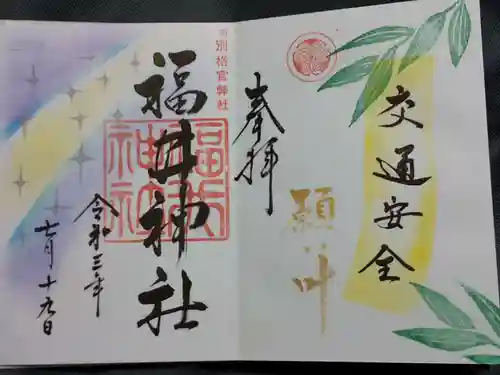 交通安全
願叶
奉拝
旧別格官幣社
福井神社
福井
神社
令和三年
七月十九日